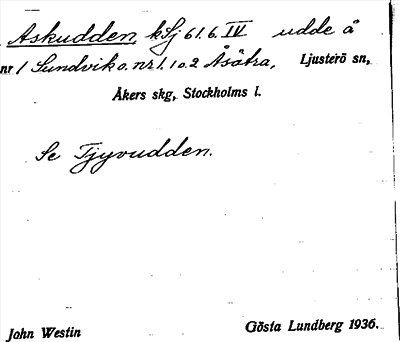 Askudden, kSj 61.6.IV udde å
nr 1 Sundvik o. nr 1 o. 2 Åsätra, Ljusterö sn,
Åkers skg, Stockholms l.
Se Tjyvudden.
John Westin Gösta Lundberg 1936.